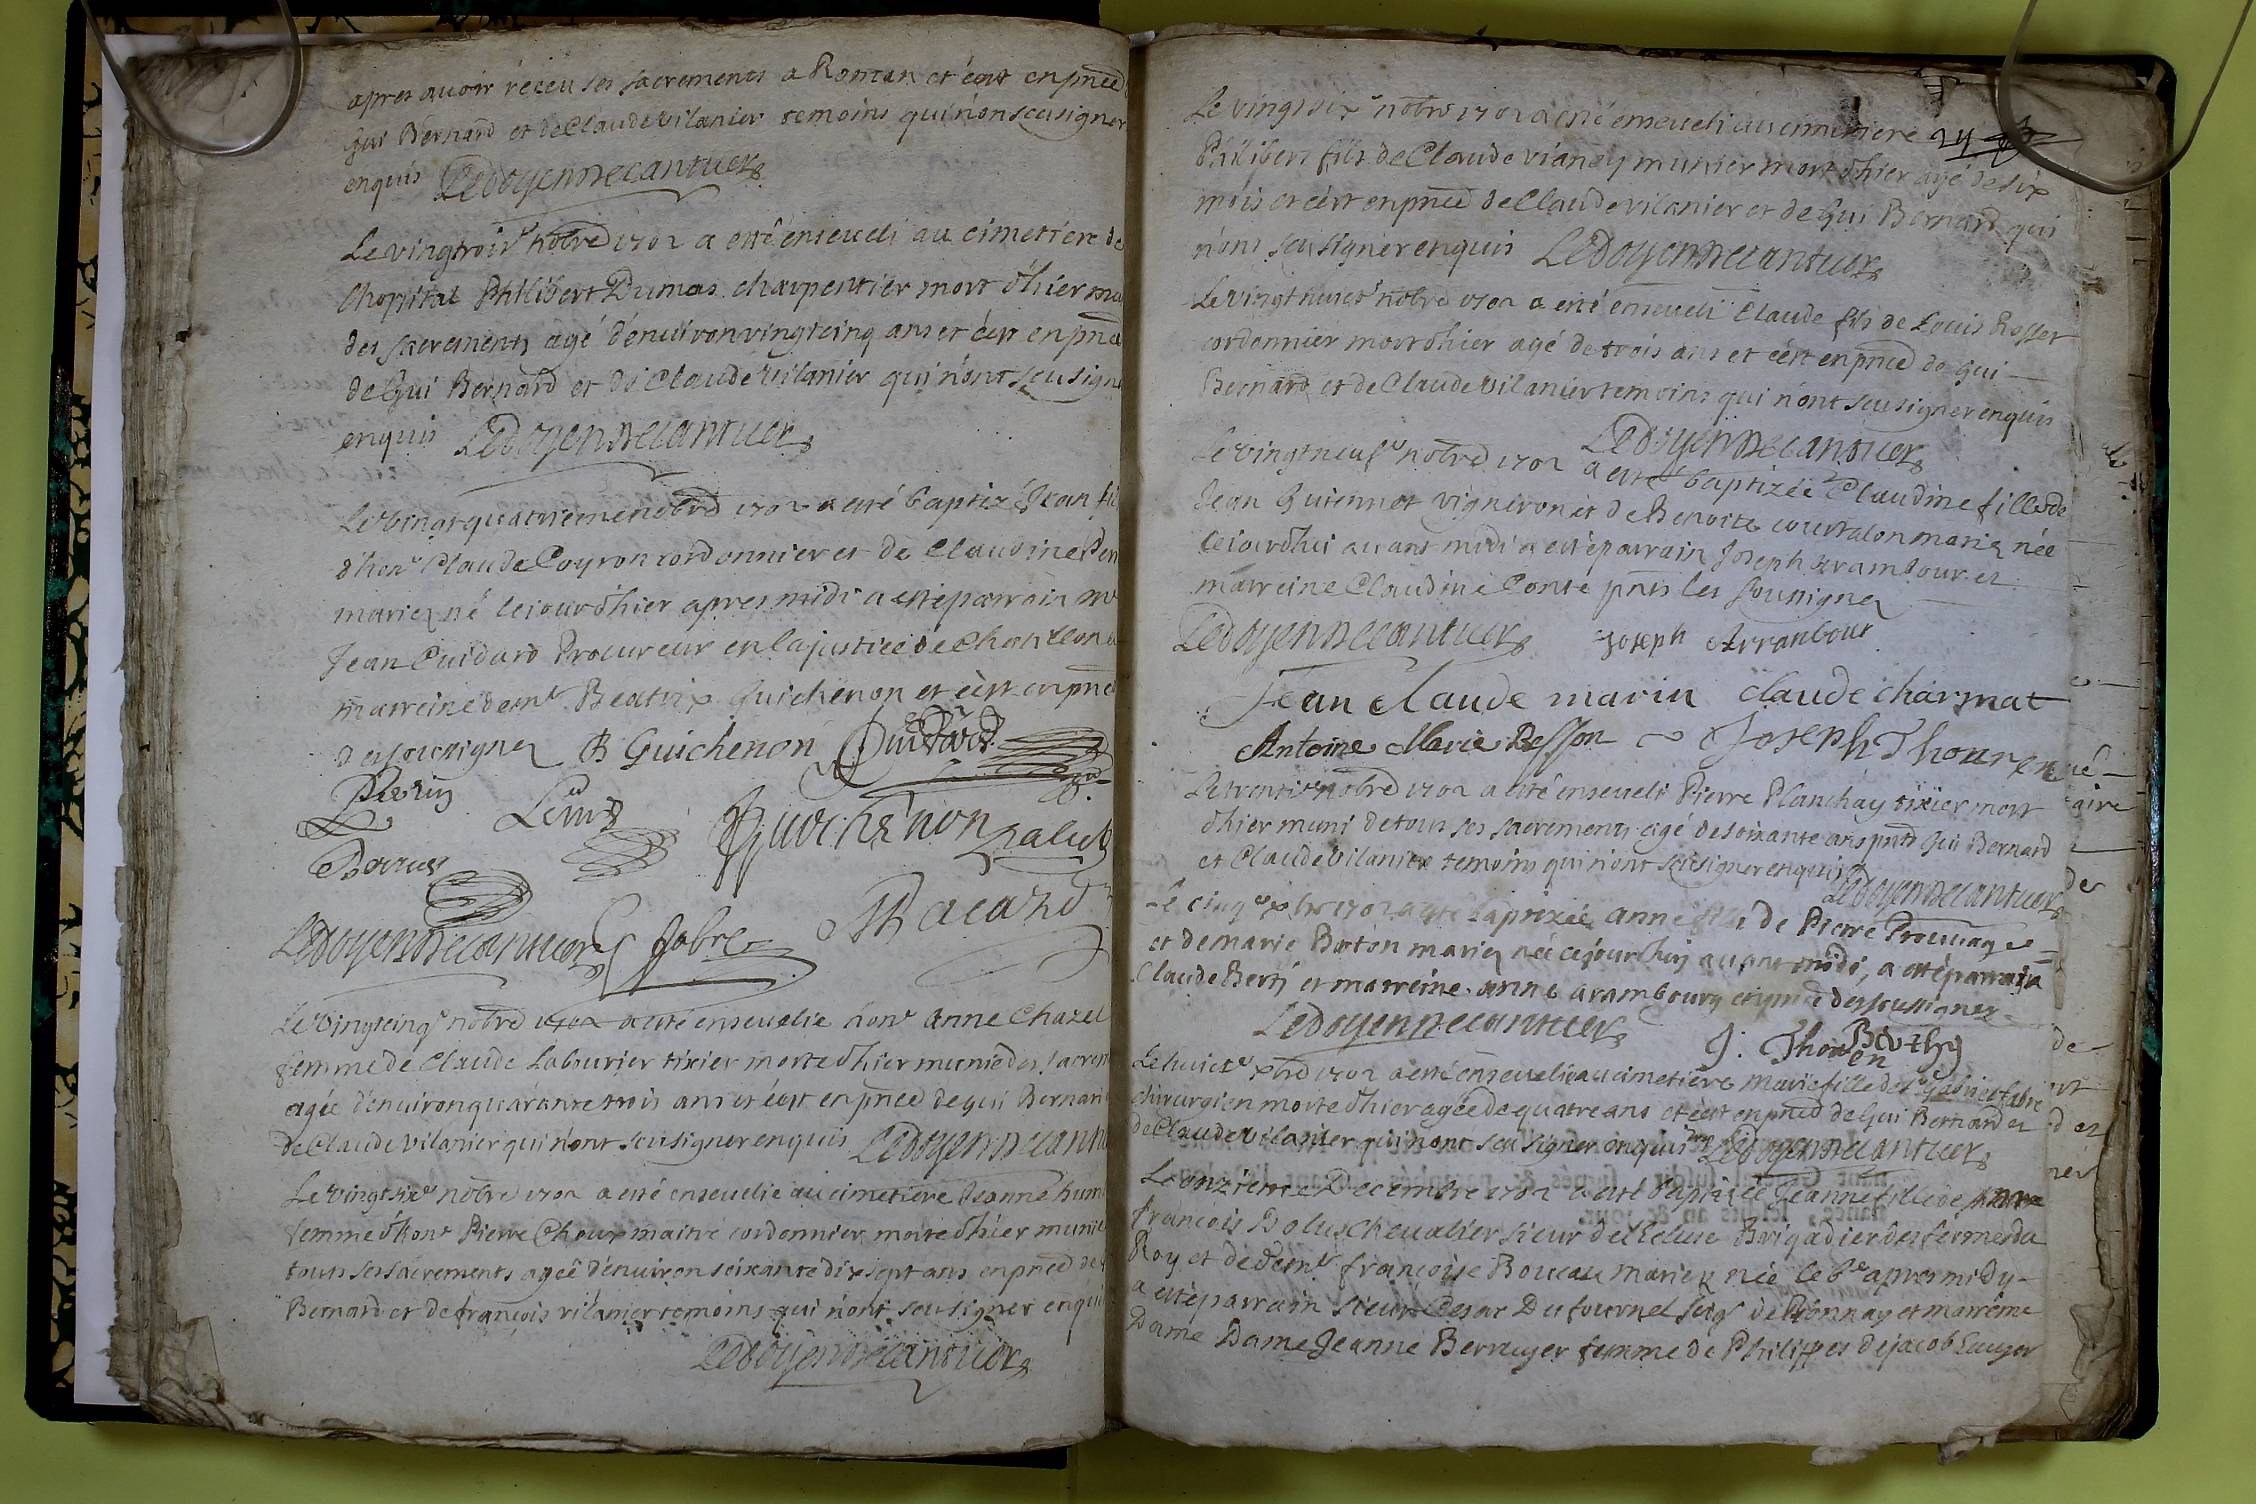 apres avoir réceu ses sacrements a Roman et c'est en pnce
Gui Bernard et de Claude vilanier temoins qui n'ont sceu signer
enquis Ledoyen decantuers
Le vingtrois.e nobre 1702 a esté enseveli au cimetiere de
l'hopital Philibert Dumas charpentier mort d'hier muni
des sacrements agé d'environ vingtcinq ans et c'est en pnce
de Gui Bernard et de Claude vilanier qui n'ont sceu signe
enquis Ledoyen decantuers
Le vingtquatriéme nobre 1702 a esté baptizé Jean fil
d'hon.e Claude Coyron cordonnier et de Claudine Peri
mariez né le jour d'hier apres midi a esté parrain mr
Jean Cuidard Procureur en la justice de Chatillon et
marreine dem.le Beatrix Guichenon et c'est en pnce
des soussignez B Guichenon Cuidard
Perrin
Guichenon
Ledoyen decantuers fabre
Le vingtcinq.e nobre 1702 a esté ensevelie hon.e Anne Chazel
femme de Claude Laburier tixier morte d'hier munie des sacrem
agée d'environ quarante trois ans et c'est en pnce de gui Bernard
de Claude vilanier qui n'ont sceu signer enquis Ledoyen decantu
Le vingtsix.e nobre 1702 a esté ensevelie au cimetiere Jeanne hum
femme d'hon.e Pierre Choux maitre cordonnier morte d'hier munie
touts ses sacrements agée d'environ soixante dix sept ans en pnce de
Bernard et de françois vilanier temoins qui n'ont sceu signer enqui
Ledoyen decantuers
Le vingtsix.e nobre 1702 a esté enseveli au cimetiere 24
Philibert fils de Claude vianey munier mort d'hier agé de six
mois et c'est en pnce de Claude vilanier et de Gui Bernard qui
n'ont sceu signer enquis Ledoyen decantuers
Le vingthuict.e nobre 1702 a esté enseveli Claude fils de Louis Rosset
cordonnier mort d'hier agé de trois ans et c'est en pnce de Gui
Bernard et de Claude vilanier temoins qui n'ont sceu signer enquis
Ledoyen decantuers
Le vingtneuf.e nobre 1702 a esté baptizée Claudine fille de
Jean Guiennet vigneron et de Benoite courtalon mariez née
le jourd'hui avant midi a esté parrain Joseph
marreine Claudine Conte pnts les soussignez
Ledoyen decantuers Joseph Arranbour
Jean Claude marin Claude charmat
Antoine Marie Besson Joseph Thouren
Le trenti.e nobre 1702 a esté enseveli Pierre Planchay tixier mort
d'hier muni de tous ses sacrements agé de soixante ans pnts Gui Bernard
et Claude vilanier temoins qui n'ont sceu signer enquis Ledoyen decantuers
Le cinq.e xbre 1702 a esté baptizée anne fille de Pierre
et de marie Borton mariez née cejourd'huy avant midi, a esté parrain
Claude Berti et marreine anne arambourg en pnce des soussignez
Ledoyen decantuers J. Thouren Berthy
Le huict.e xbre 1702 a esté ensevelie au cimetiere marie fille de Sr Gabriel fabre
chirurgien morte d'hier agée de quatre ans et c'est en pnce de Gui Bernard et
de Claude vilanier qui n'ont sceu signer enquis Ledoyen decantuers
Le onzieme Decembre 1702 a esté baptizée Jeanne fille de
françois Bolus Chevalier sieur de l'Ecluse Brigadier des fermes du
Roy et de Dem.le françoise Boucau mariez née le 6e apres midy
a esté parrain sieur Cesar Du fournel Seigr de et marreine
Dame Dame Jeanne Berruyer femme de Philippes dejacob Escuyer